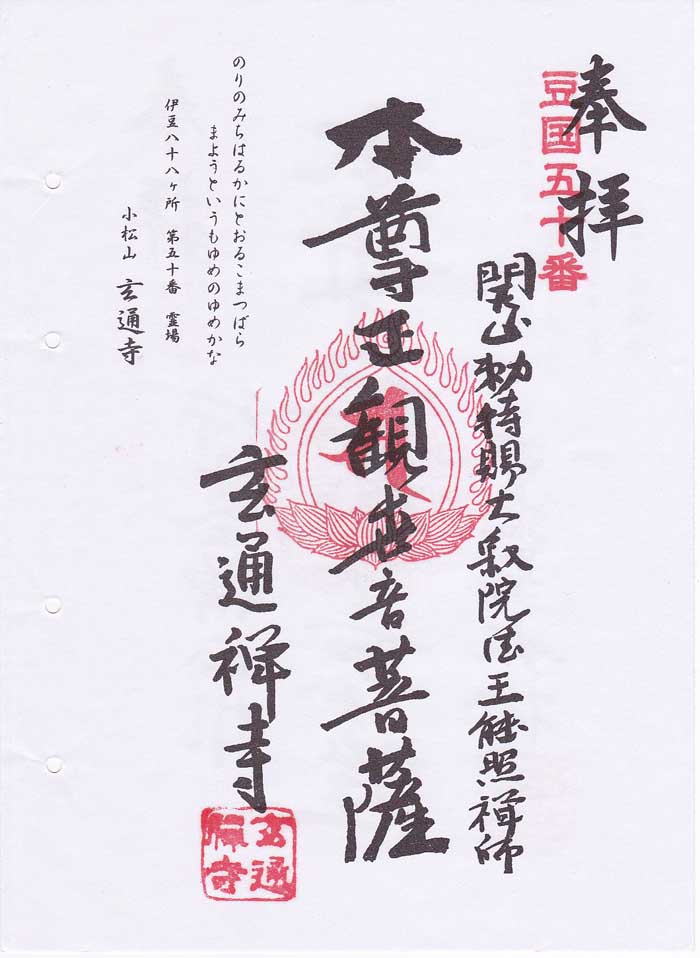 奉拝
豆国五十番
開山勅特賜大叡院法王能照禅師
本尊正観世音菩薩
玄通禅寺
玄通
禅寺
のりのみちはるかにとおるこまつばら
まようというもゆめのゆめかな
伊豆八十八ヶ所 第五十番 霊場
小松山 玄通寺